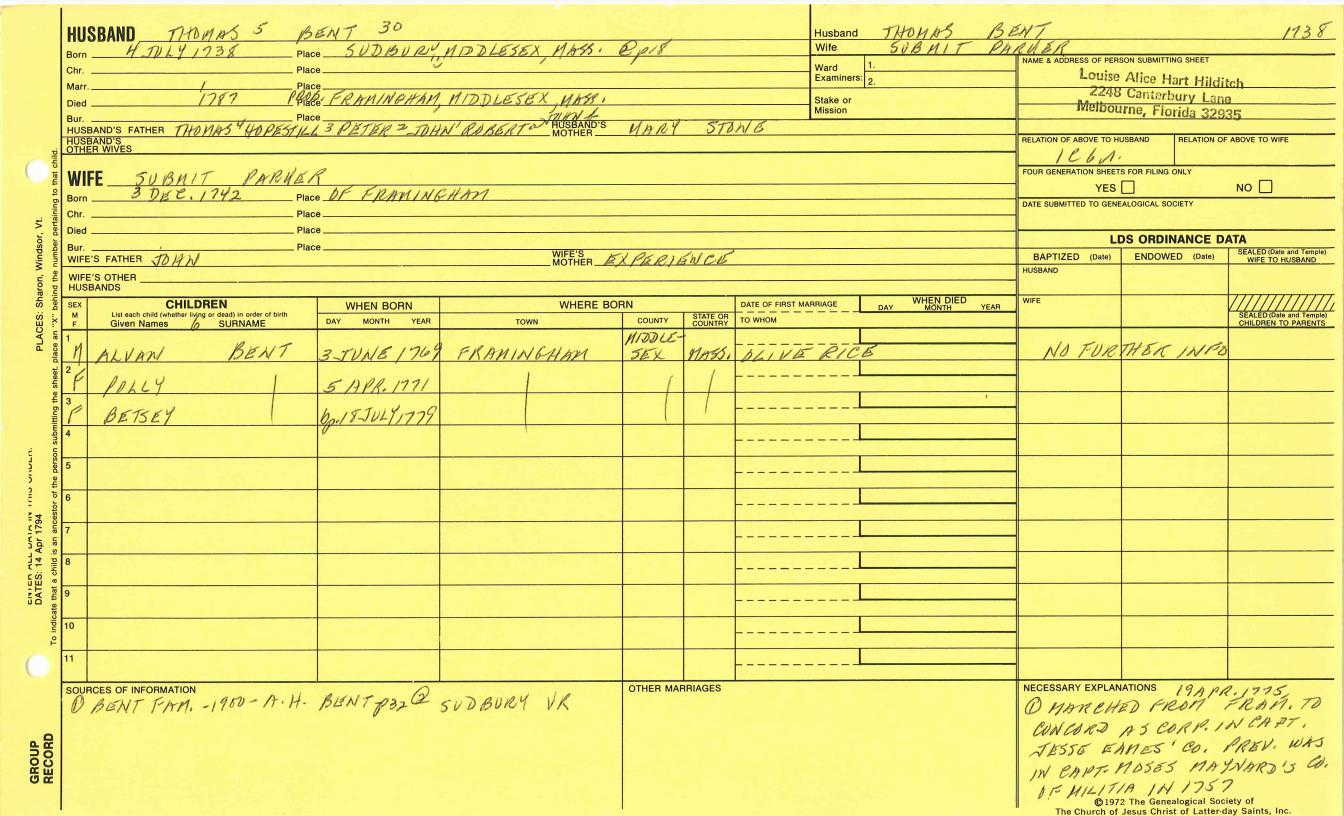 HUSBAND THOMAS 5 BENT 30
Born 4 JULY 1738 Place SUDBURY, MIDDLESEX, MASS. ② p18
Chr. Place
Marr. Place
Died 1787 Place PROB. FRAMINGHAM, MIDDLESEX, MASS.
Bur. Place
HUSBAND'S FATHER THOMAS 4 HOPESTILL 3 PETER 2 JOHN 1 ROBERT HUSBAND'S MOTHER MARY STONE
HUSBAND'S OTHER WIVES
Husband THOMAS BENT 1738
Wife SUBMIT PARKER
Ward 1.
Examiners: 2.
Stake or
Mission
NAME & ADDRESS OF PERSON SUBMITTING SHEET
Louise Alice Hart Hilditch
2248 Canterbury Lane
Melbourne, Florida 32935
RELATION OF ABOVE TO HUSBAND RELATION OF ABOVE TO WIFE
1C6R.
FOUR GENERATION SHEETS FOR FILING ONLY
YES NO
DATE SUBMITTED TO GENEALOGICAL SOCIETY
WIFE SUBMIT PARKER
Born 3 DEC. 1742 Place OF FRAMINGHAM
Chr. Place
Died Place
Bur. Place
WIFE'S FATHER JOHN WIFE'S MOTHER EXPERIENCE
WIFE'S OTHER HUSBANDS
LDS ORDINANCE DATA
BAPTIZED (Date) ENDOWED (Date) SEALED (Date and Temple) WIFE TO HUSBAND
HUSBAND
WIFE
SEALED (Date and Temple) CHILDREN TO PARENTS
SEX M F CHILDREN WHEN BORN WHERE BORN DATE OF FIRST MARRIAGE WHEN DIED
List each child (whether living or dead) in order of birth
Given Names 6 SURNAME DAY MONTH YEAR TOWN COUNTY STATE OR COUNTRY TO WHOM DAY MONTH YEAR
1 M ALVAN BENT 3 JUNE 1769 FRAMINGHAM MIDDLE-SEX MASS. OLIVE RICE NO FURTHER INFO
2 F POLLY 5 APR. 1771
3 F BETSEY bp. 18 JULY 1779
4
5
6
7
8
9
10
11
SOURCES OF INFORMATION
① BENT FAM. -1900- A.H. BENT p32 ② SUDBURY VR
OTHER MARRIAGES
NECESSARY EXPLANATIONS 19 APR. 1775
① MARCHED FROM FRAM. TO
CONCORD AS CORP. IN CAPT.
JESSE EAMES' CO. PREV. WAS
IN CAPT. MOSES MAYNARD'S CO.
OF MILITIA IN 1757
©1972 The Genealogical Society of
The Church of Jesus Christ of Latter-day Saints, Inc.
PLACES: Sharon, Windsor, Vt.
ENTER ALL DATA IN THIS ORDER:
DATES: 14 Apr 1794
To indicate that a child is an ancestor of the person submitting the sheet, place an "X" behind the number pertaining to that child.
GROUP
RECORD